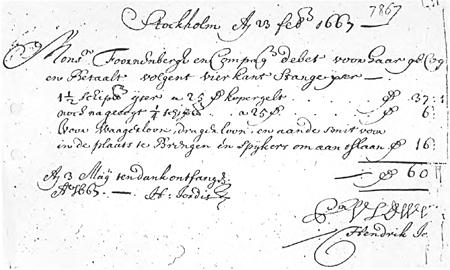 7867
Stockholm Ady 23 feb 1667
Mons Toornenbergh en Comp debet voor haar
en Betaelt volgent vierkant Stange ijser
1½ Schips ijser a 25 kopergelt 37:
noch nagecogt ¼ schip a 25 6:
Voor Waageloon, drageloon, en aande smit voor
in de plaats te Brengen en Spijkers om aan slaan 16:
60
Ady 3 Maij ten dank ontfange
A° 1667. H: Jordis
Hendrik Jo